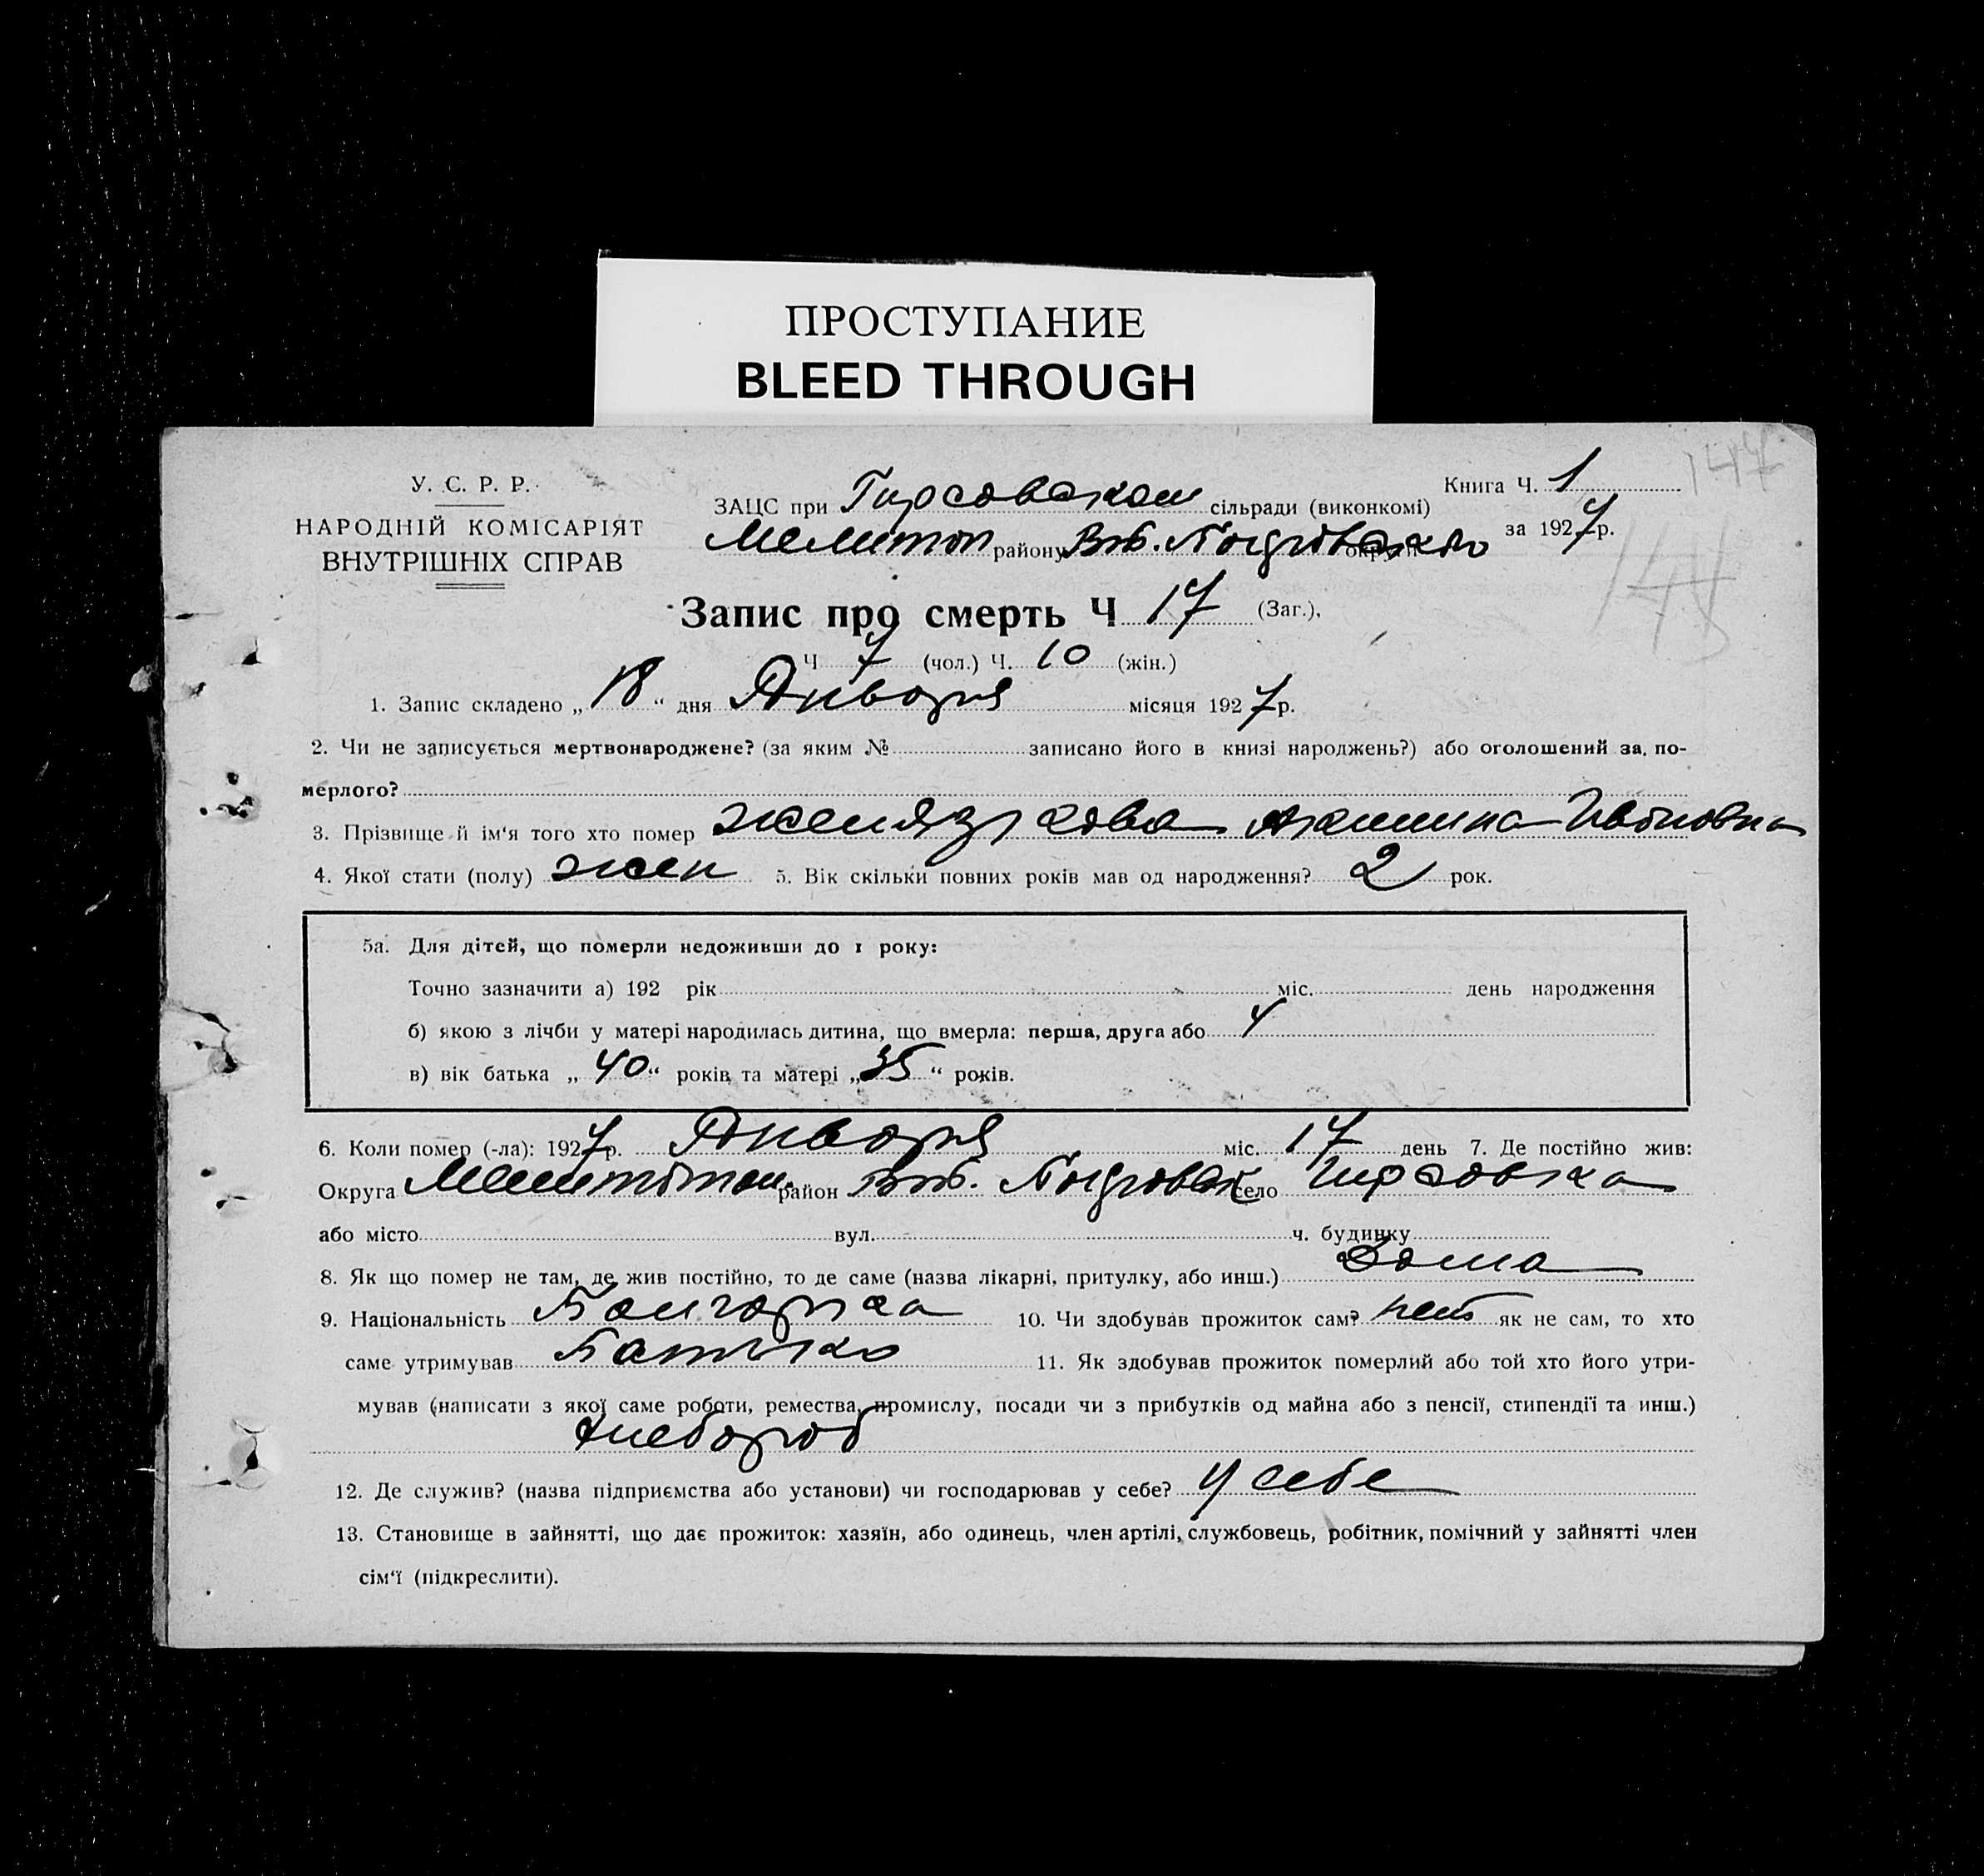 ПРОСТУПАНИЕ
BLEED THROUGH
У. С. Р. Р.
НАРОДНІЙ КОМІСАРІЯТ
ВНУТРІШНІХ СПРАВ
147
ЗАЦС при Гирсовском сільради (виконкомі)
Книга Ч. 1
Мелитоп району округи
за 1927 р.
Запис про смерть Ч 17 (Заг.),
Ч 7 (чол.) Ч. 10 (жін.)
1. Запис складено „ 18 “ дня Января місяця 1927 р.
2. Чи не записується мертвонароджене? (за яким № записано його в книзі народжень?) або оголошений за по-
мерлого?
3. Прізвище й ім‘я того хто помер Ивановна
4. Якої стати (полу) жен 5. Вік скільки повних років мав од народження? 2 рок.
5а. Для дітей, що померли недоживши до 1 року:
Точно зазначити а) 192 рік міс. день народження
б) якою з лічби у матері народилась дитина, що вмерла: перша, друга або 4
в) вік батька „ 40 “ років та матері „ 35 “ років.
6. Коли помер (-ла): 1927 р. Января міс. 17 день 7. Де постійно жив:
Округа район село Гирсовка
або місто вул. ч. будинку
8. Як що помер не там, де жив постійно, то де саме (назва лікарні, притулку, або инш.) Дома
9. Національність Болгарка 10. Чи здобував прожиток сам? нет як не сам, то хто
саме утримував Батько 11. Як здобував прожиток померлий або той хто його утри-
мував (написати з якої саме роботи, ремества, промислу, посади чи з прибутків од майна або з пенсії, стипендії та инш.)
Хлебороб
12. Де служив? (назва підприємства або установи) чи господарював у себе? У себе
13. Становище в зайнятті, що дає прожиток: хазяїн, або одинець, член артілі, службовець, робітник, помічний у зайнятті член
сім‘ї (підкреслити).